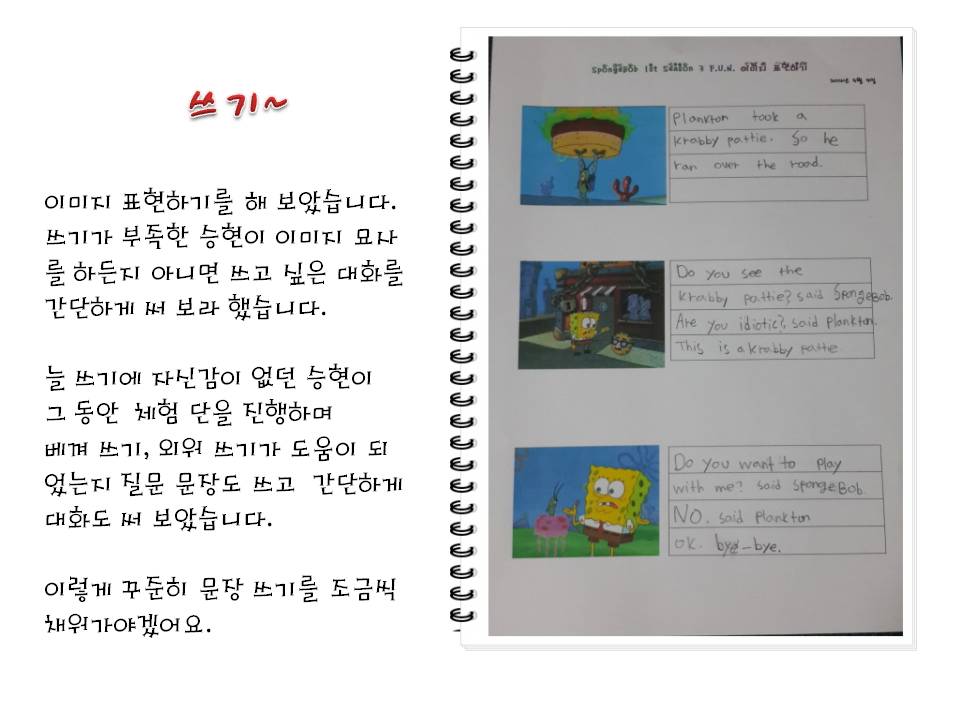 쓰기~
이미지 표현하기를 해 보았습니다.
쓰기가 부족한 승현이 이미지 묘사
를 하든지 아니면 쓰고 싶은 대화를
간단하게 써 보라 했습니다.
늘 쓰기에 자신감이 없던 승현이
그 동안 체험 단을 진행하며
베껴 쓰기, 외워 쓰기가 도움이 되
었는지 질문 문장도 쓰고 간단하게
대화도 써 보았습니다.
이렇게 꾸준히 문장 쓰기를 조금씩
채워가야겠어요.
Spongebob 1st Season 3 F.U.N. 이미지 표현하기
Plankton took a
krabby pattie. So he
ran over the road.
Do you see the
krabby pattie? said SpongeBob.
Are you idiotic? said plankton.
This is a krabby pattie
Do you want to play
with me? said SpongeBob.
NO. said plankton
ok. bye-bye.